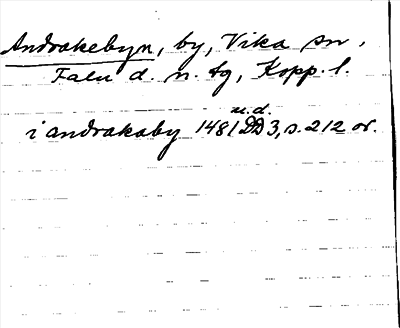 Andvakebyn, by, Vika sn,
Falu d. n. tg, Kopp. l.
u.d.
i andvakaby 1481 DD 3, s. 212 or.